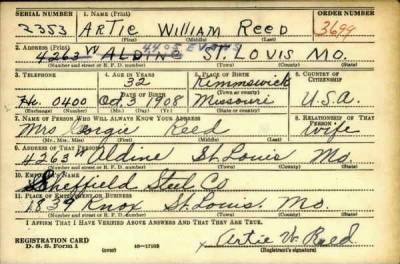 SERIAL NUMBER 1. NAME (Print) ORDER NUMBER
2353 ARTIE WILLIAM REED 3699
(First) (Middle) (Last)
2. ADDRESS (Print) 4405 EVANS
4263 W ALDINE ST LOUIS MO.
(Number and street or R. F. D. number) (Town) (County) (State)
3. TELEPHONE 4. AGE IN YEARS 5. PLACE OF BIRTH 6. COUNTRY OF CITIZENSHIP
32 Kimmswick
DATE OF BIRTH (Town or county)
0400 Oct, 3 1908 Missouri U.S.A.
(Exchange) (Number) (Mo.) (Day) (Yr.) (State or country)
7. NAME OF PERSON WHO WILL ALWAYS KNOW YOUR ADDRESS 8. RELATIONSHIP OF THAT PERSON
Mrs Georgie Reed wife
(Mr., Mrs., Miss) (First) (Middle) (Last)
9. ADDRESS OF THAT PERSON
4263 Aldine St. Louis Mo.
(Number and street or R. F. D. number) (Town) (County) (State)
10. EMPLOYER'S NAME
Sheffield Steel Co
11. PLACE OF EMPLOYMENT OR BUSINESS
1839 Knox St. Louis. Mo.
(Number and street or R. F. D. number) (Town) (County) (State)
I AFFIRM THAT I HAVE VERIFIED ABOVE ANSWERS AND THAT THEY ARE TRUE.
REGISTRATION CARD
D. S. S. Form 1 (over) 16-17105 x Artie W. Reed
(Registrant's signature)